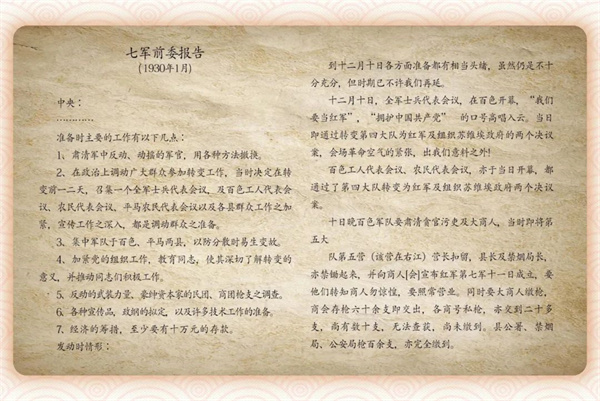 七军前委报告
(1930年1月)
中央：
…………
准备时主要的工作有以下几点：
1、肃清军中反动、动摇的军官，用各种方法撤换。
2、在政治上调动广大群众参加转变工作，当时决定在转
变前一二天，召集一个全军士兵代表会议，及百色工人代表会
议、农民代表会议、平马农民代表会议以及各县群众工作之加
紧，宣传工作之深入，都是调动群众之准备。
3、集中军队于百色、平马两县，以防分散时易生变故。
4、加紧党的组织工作，教育同志，使其深切了解转变的
意义，并推动同志们积极工作。
5、反动的武装力量、豪绅资本家的民团、商团枪支之调查。
6、各种宣传品，政纲的拟定，以及许多技术工作的准备。
7、经济的筹措，至少要有十万元的存款。
发动时情形：
到十二月十日各方面准备都有相当头绪，虽然仍是不十
分充分，但时期已不许我们再延。
十二月十日，全军士兵代表会议，在百色开幕，“我们
要当红军”，“拥护中国共产党” 的口号高唱入云。当日
即通过转变第四大队为红军及组织苏维埃政府的两个决议
案，会场革命空气的紧张，出我们意料之外!
百色工人代表会议，农民代表会议，亦于当日开幕，都
通过了第四大队转变为红军及组织苏维埃政府两个决议
案。
十日晚百色军队要肃清贪官污吏及大商人，当时即将第
五大
队第五营（该营在右江）营长扣留，县长及禁烟局长，
亦禁锢起来，并向商人[会]宣布红军第七军十一日成立，要
他们转知商人勿惊惶，要照常营业。同时要大商人缴枪，
商会存枪六十余支即交出，各商号私枪，亦交到二十多
支，尚有数十支，无法查获，尚未缴到。县公署、禁烟
局、公安局枪百余支，亦完全缴到。